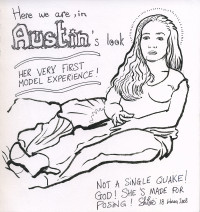 Here we are, in
Austin's look
HER VERY FIRST
MODEL EXPERIENCE!
NOT A SINGLE QUAKE!
GOD! SHE'S MADE FOR
POSING!